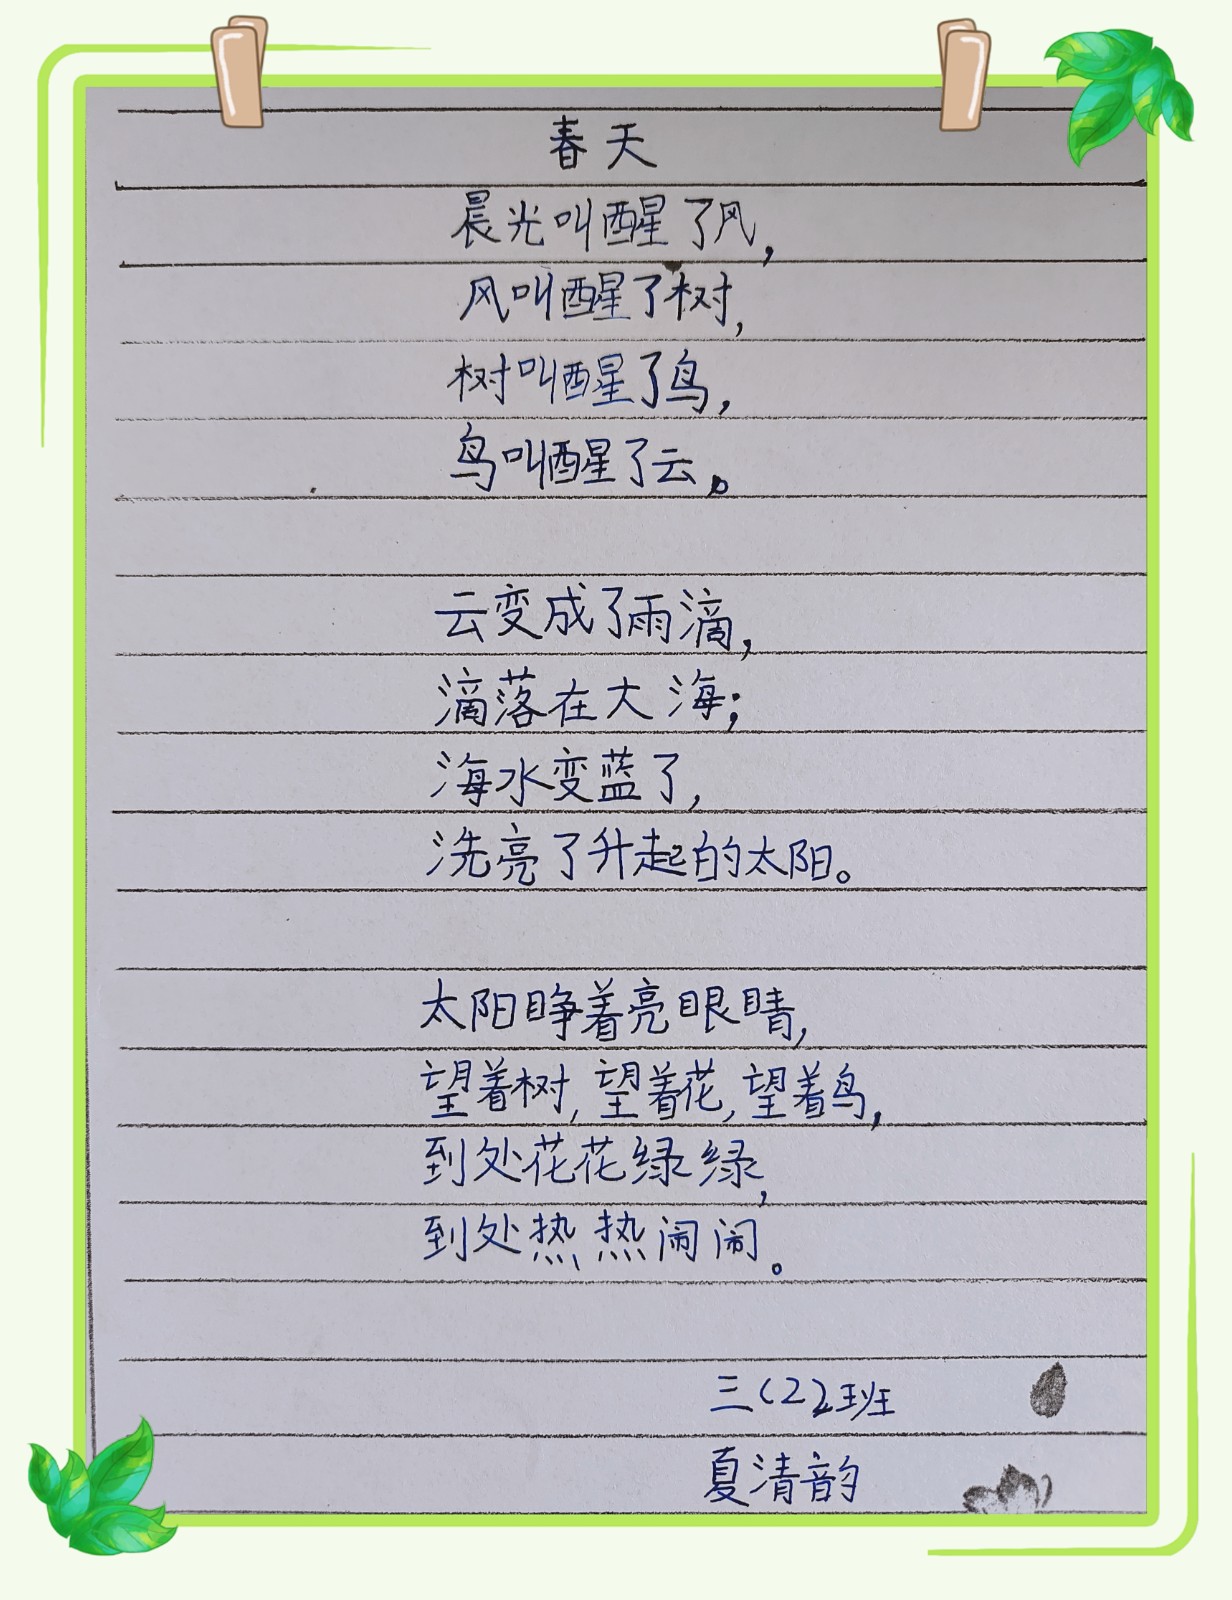 春天
晨光叫醒了风,
风叫醒了树,
树叫醒了鸟,
鸟叫醒了云。
云变成了雨滴,
滴落在大海;
海水变蓝了,
洗亮了升起的太阳。
太阳睁着亮眼睛,
望着树,望着花,望着鸟,
到处花花绿绿,
到处热热闹闹。
三(2)班
夏清韵